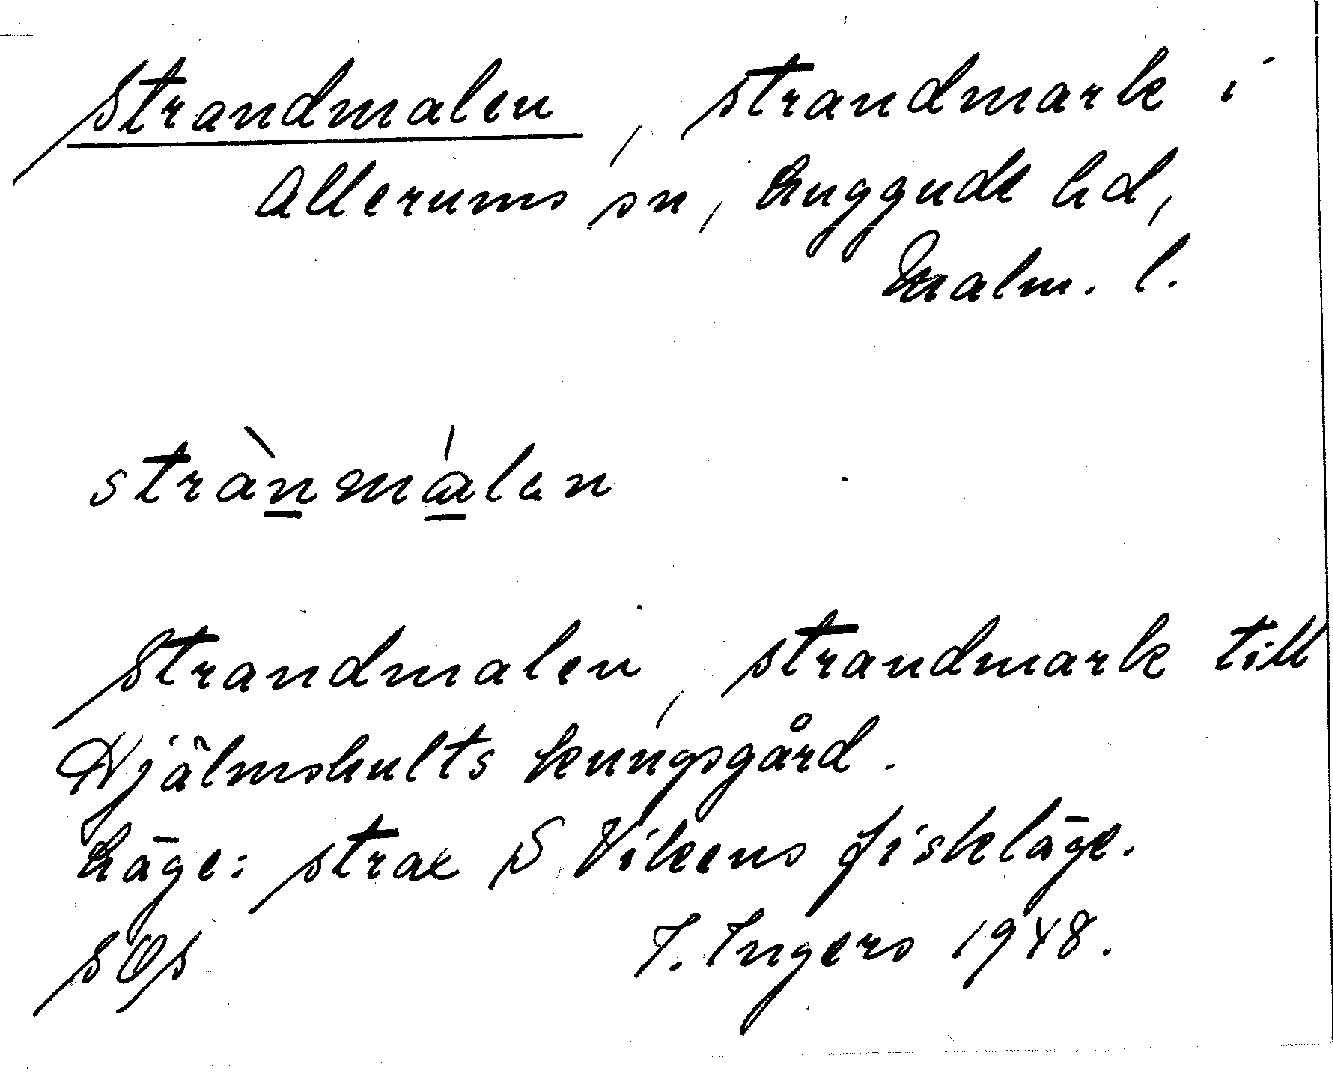 Strandmalen, strandmark i
Allerums sn, Luggude hd,
Malm. l.
strànmálen
Strandmalen, strandmark till
Hjälmshults kungsgård.
Läge: strax S Vikens fiskläge.
I. Ingers 1948.